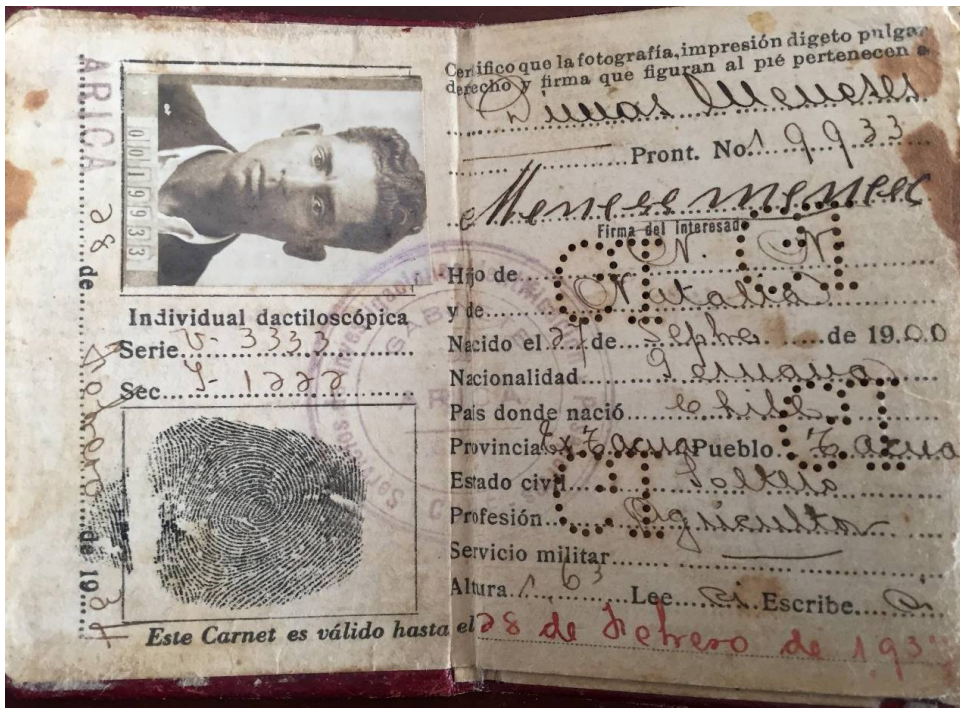 ARICA 28 de Febrero de 19
0019933
Individual dactiloscópica
Serie V-3333
Sec I-1222
Este Carnet es válido hasta el 28 de Febrero de 193
Certifico que la fotografía, impresión digeto pulgar
derecho y firma que figuran al pié pertenecen a
Dimas Meneses
Pront. No. 19933
Firma del Interesado
Hijo de N. N
y de Natalia
Nacido el 29 de Sepbre de 1900
Nacionalidad Peruana
País donde nació Chile
Provincia Ex Tacna Pueblo Tacna
Estado civil Soltero
Profesión Agricultor
Servicio militar
Altura 1,63 Lee si Escribe si
GABINETE
ARICA